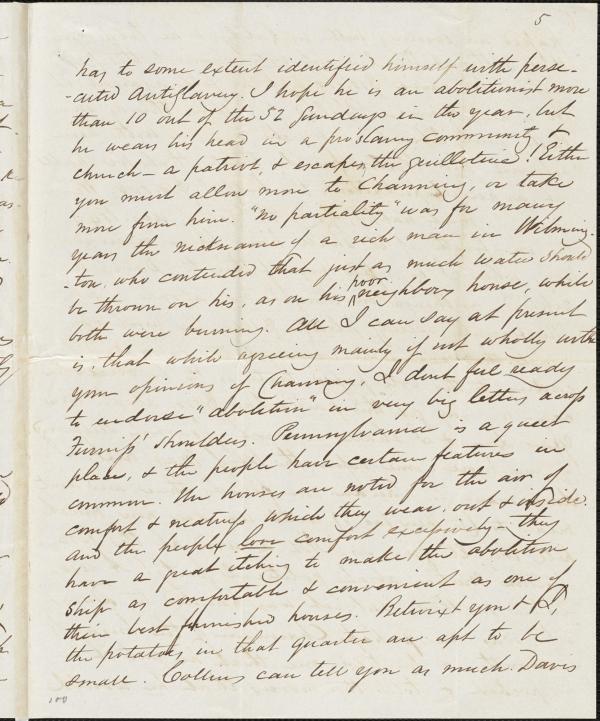 5
has to some extent identified himself with perse-
-cuted Antislavery. I hope he is an abolitionist more
than 10 out of the 52 Sundays in the year, but
he wears his head in a proslavery community &
church – a patriot, & escapes the guilletine! Either
you must allow more to Channing, or take
more from him. "No partiality" was for many
years the nickname of a rich man in Wilming-
-ton, who contended that just as much water should
be thrown on his, as on his poor neighbors house, while
both were burning. All I can say at present
is, that while agreeing mainly if not wholly with
your opinions of Channing, I dont feel ready
to endorse "abolition" in very big letters across
Furness' shoulders. Pennsylvania is a queer
place, & the people have certain features in
common. The houses are noted for the air of
comfort & neatness which they wear, out & inside.
And the people love comfort excessively – they
have a great itching to make the abolition
ship as comfortable & convenient as one of
their best furnished houses. Betwixt you & I,
the potatoes in that quarter are apt to be
small. Collins can tell you as much. Davis